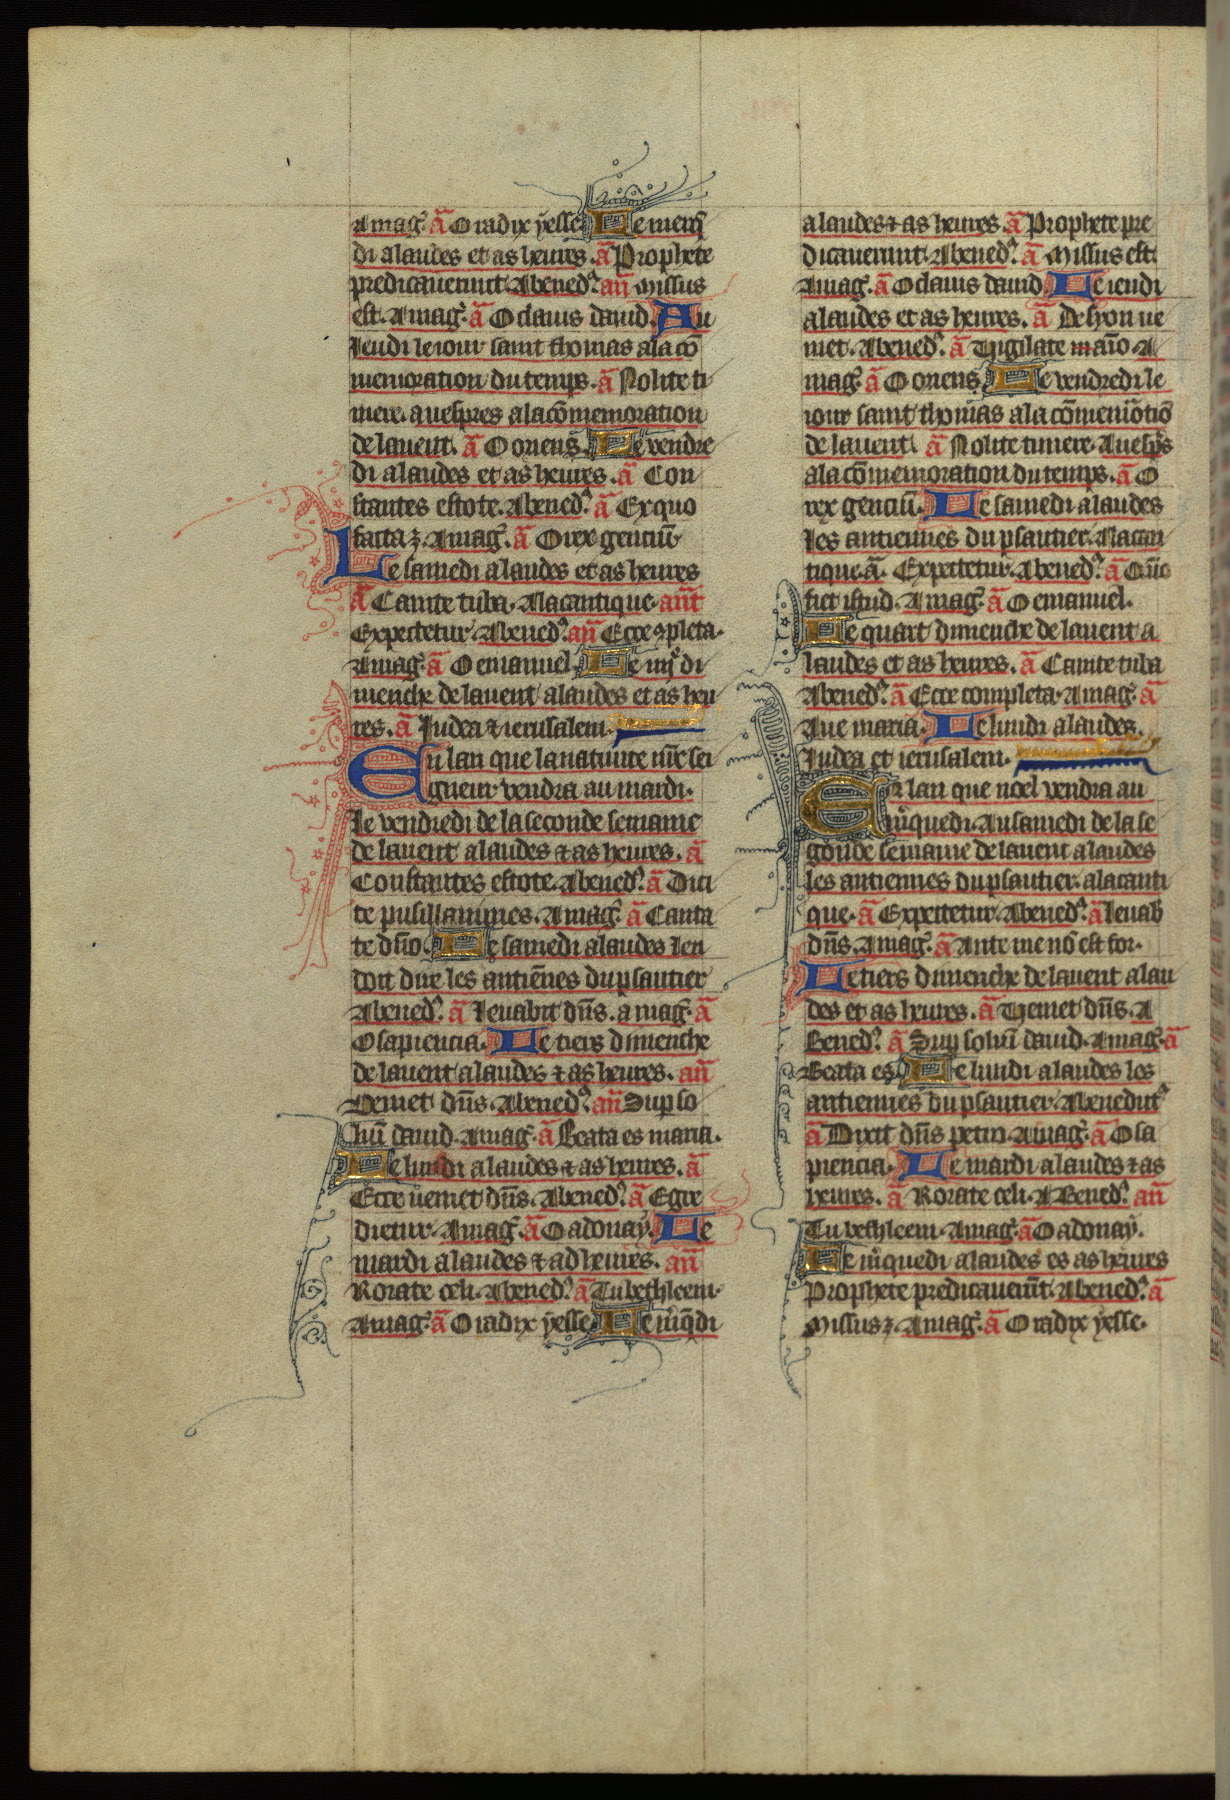 A mag᷒. añ O radix yesse. Le mer̃
di a laudes et as heures. añ Prophete
predicauerunt. A bened᷒. añ Missus
est. A mag᷒. añ O clauis dauid. Au
Jeudi le iour saint thomas a la cõ
memoration du temps. añ Nolite ti
mere. a uespres a la cõmemoration
de lauent. añ O oriens. Le vendre
di a laudes et as heures. añ Con
stantes estote. A bened᷒. añ Ex quo
facta ꝫ. A mag᷒. añ O rex gentiũ.
Le samedi a laudes et as heures
añ Canite tuba. A la cantique. añt
Expectetur. A bened᷒. añ Ecce ꝯpleta.
A mag᷒. añ O emanuel. Le iiij᷒ di
menche de lauent a laudes et as heu
res. añ Judea ⁊ ierusalem.
En lan que la natiuite nr̃e sei
gneur vendra au mardi.
Le vendredi de la seconde semaine
de lauent a laudes ⁊ as heures. añ
Constantes estote. A bened᷒. añ Dici
te pusillanimes. A mag᷒. añ Canta
te dño. Le samedi a laudes len
doit dire les antiẽnes du psautier
A bened᷒. añ Leuabit dñs. a mag᷒. añ
O sapiencia. Le tiers dimenche
de lauent a laudes ⁊ as heures. añ
Veniet dñs. A bened᷒. añ Sup so
liũ dauid. A mag᷒. añ Beata es maria.
Le lundi a laudes ⁊ as heures. añ
Ecce ueniet dñs. A bened᷒. añ Egre
dietur. A mag᷒. añ O adonay. Le
mardi a laudes ⁊ ad heures. añ
Rorate celi. A bened᷒. añ Tu bethleem.
A mag᷒. añ O radix yesse. Le m̃q̃di
a laudes ⁊ as heures. añ Prophete pre
dicauerunt. A bened᷒. añ Missus est.
A mag᷒. añ O clauis dauid. Le ieudi
a laudes et as heures. añ De syon ue
niet. A bened᷒. añ Vigilate aĩo. A
mag᷒. añ O oriens. Le vendredi le
iour saint thomas a la cõmem̃otiõ
de lauent. añ Nolite timere. A uesp̃s
a la cõmemoration du temps. añ O
rex genciũ. Le samedi a laudes
les antiennes du psautier. A la can
tique. añ. Expectetur. A bened᷒. añ Quõo
fiet istud. A mag᷒. añ O emanuel.
Le quart dimenche de lauent a
laudes et as heures. añ Canite tuba
A bened᷒. añ Ecce completa. A mag᷒. añ
Aue maria. Le lundi a laudes.
Judea et ierusalem.
En lan que noel vendra au
m̃quedi. Au samedi de la se
gonde semaine de lauent a laudes
les antiennes du psautier. a la canti
que. añ Expectetur. A bened᷒. añ leuab
dñs. A mag᷒. añ Ante me nõ est for.
Le tiers dimenche de lauent a lau
des et as heures. añ Veniet dñs. A
Bened᷒. añ Sup soliũ dauid. A mag᷒. añ
Beata es. Le lundi a laudes les
antiennes du psautier. A benedict᷒
añ Dixit dñs petro. A mag᷒. añ O sa
piencia. Le mardi a laudes ⁊ as
heures. añ Rorate celi. A Bened᷒. añ
Tu bethleem. A mag᷒. añ O adonay.
Le m̃quedi a laudes es as heures
Prophete predicauer̃ut. A bened᷒. añ
Missus ꝫ. A mag᷒. añ O radix yesse.